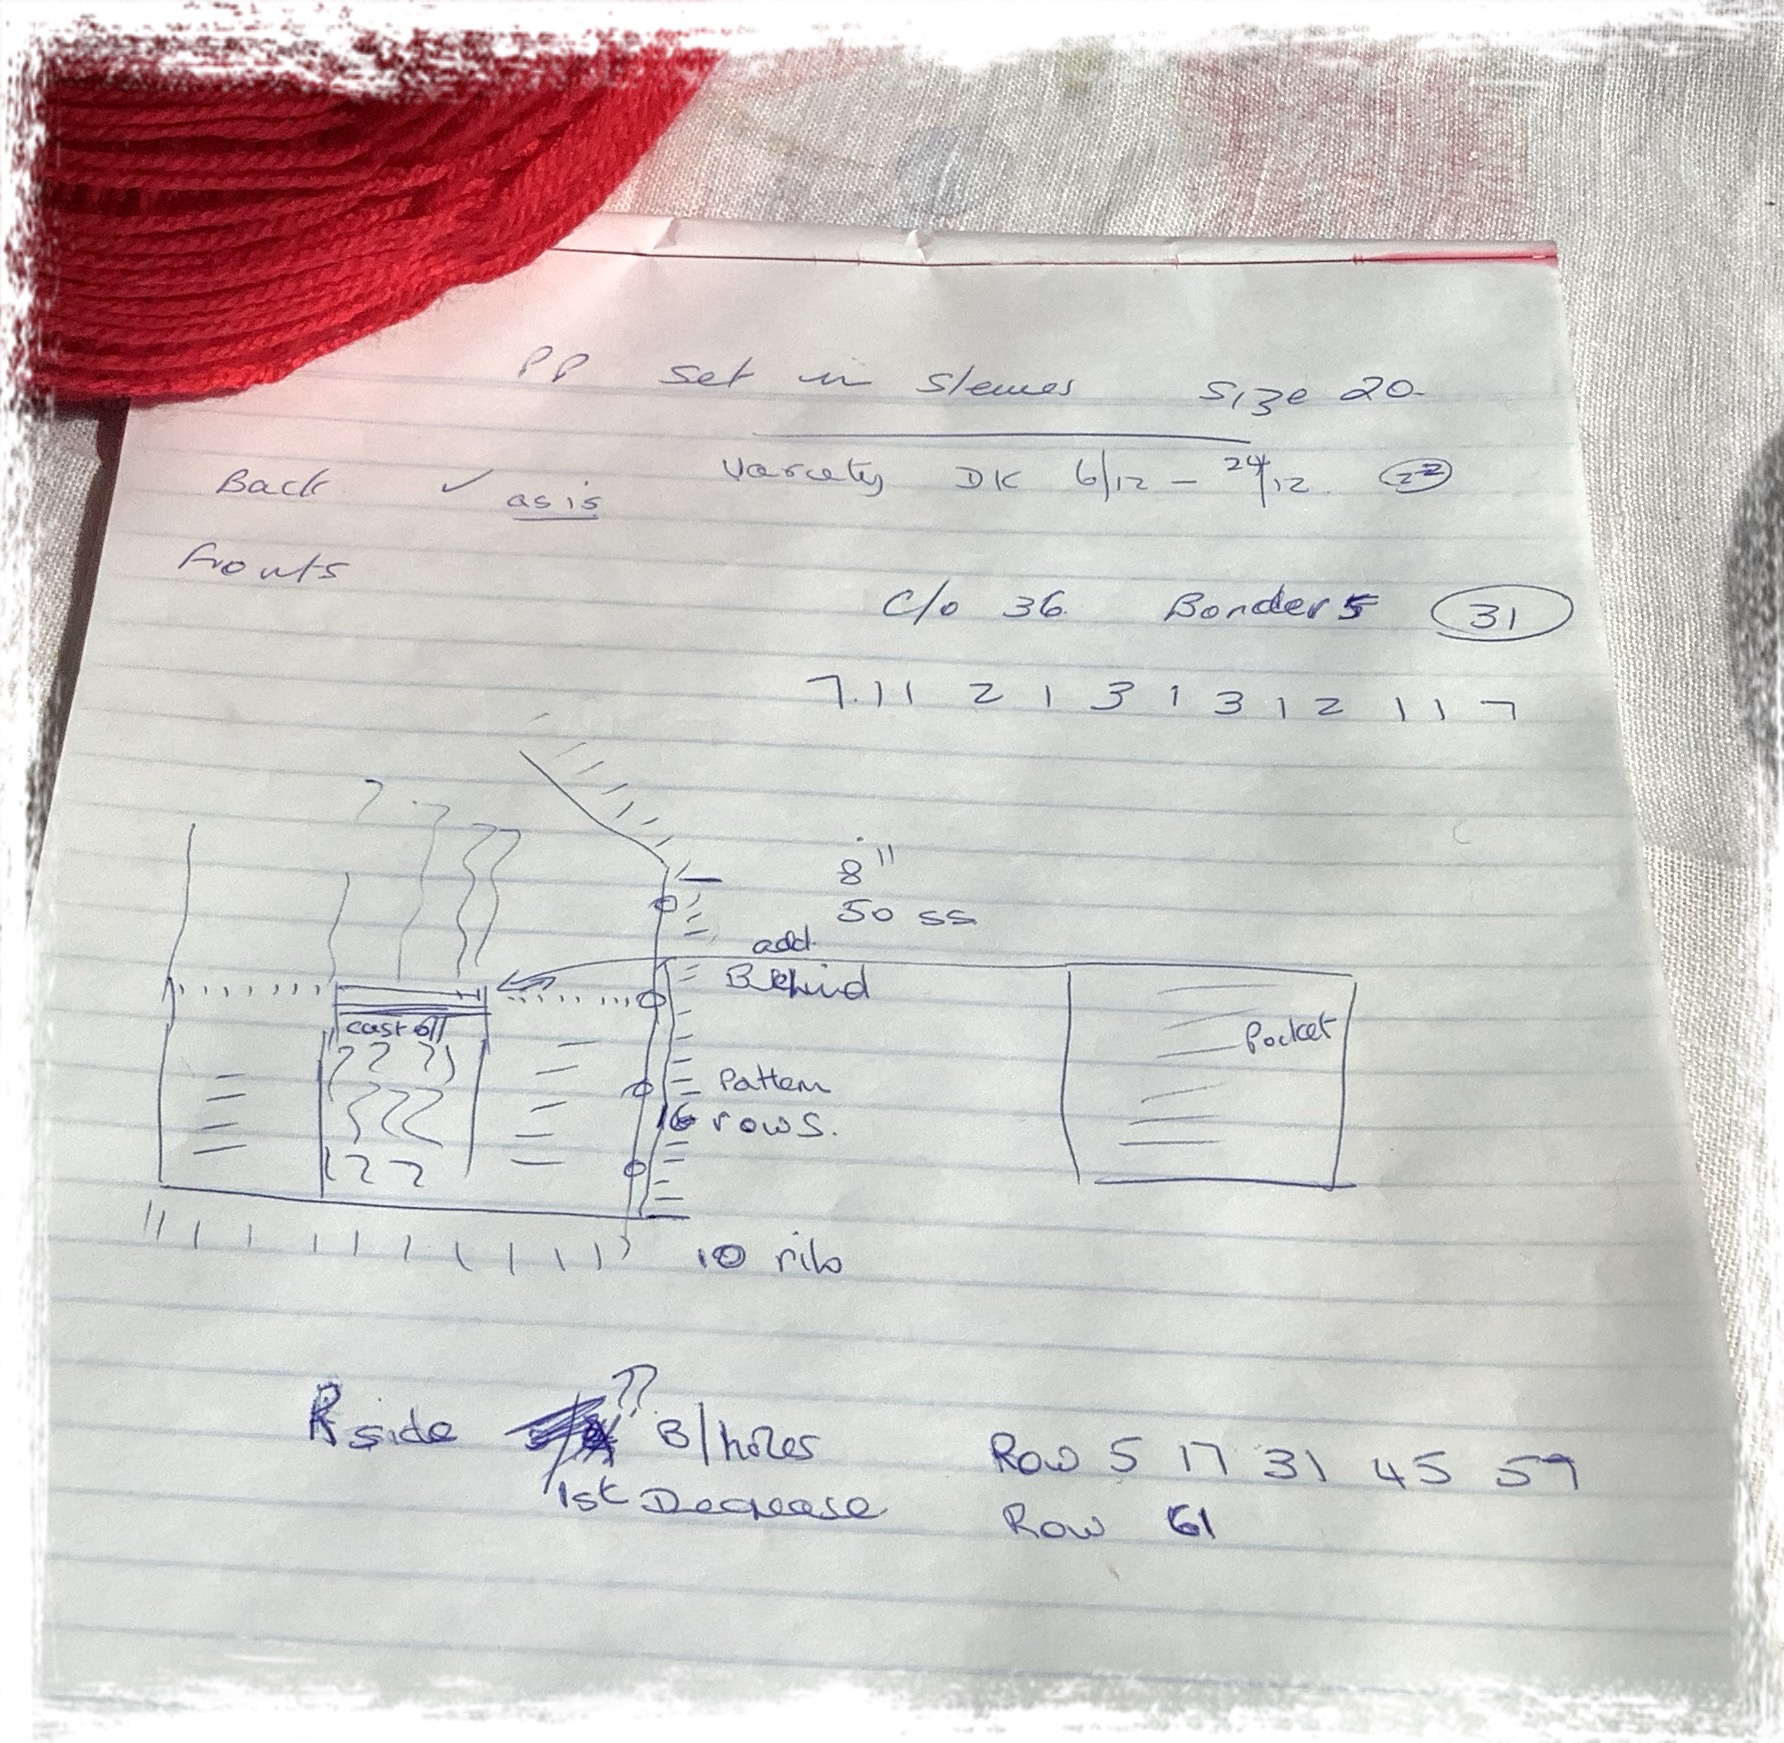 PP set in sleeves Size 20.
Variety DK 6/12 - 24/12. 22
Back ✓ as is
Fronts
C/o 36. Border 5 31
7.11 2 1 3 1 3 1 2 1 1 7
8"
50 ss
add
Behind
cast off
Pocket
Pattern
16 rows.
10 rib
R side ?? B/holes Row 5 17 31 45 59
1st Decrease Row 61